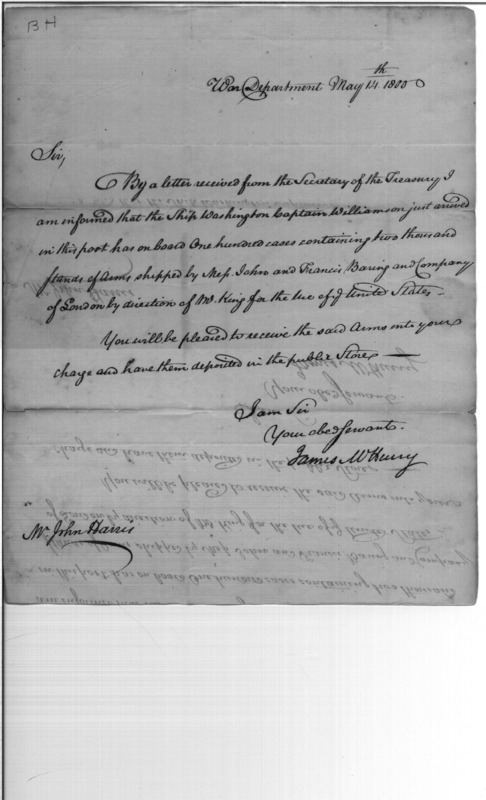 BH
War Department May 14th 1800
Sir,
By a letter received from the Secretary of the Treasury I
am informed that the Ship Washington Captain Williamson just arrived
in this port has on board One hundred cases containing two thousand
stands of Arms, shipped by Mess. John and Francis Baring and Company
of London by direction of Mr. King for the Use of ye United States –
You will be pleased to receive the said Arms into your
charge and have them deposited in the public Store –
I am Sir
Your obed Servant.
James McHenry
Mr John Harris